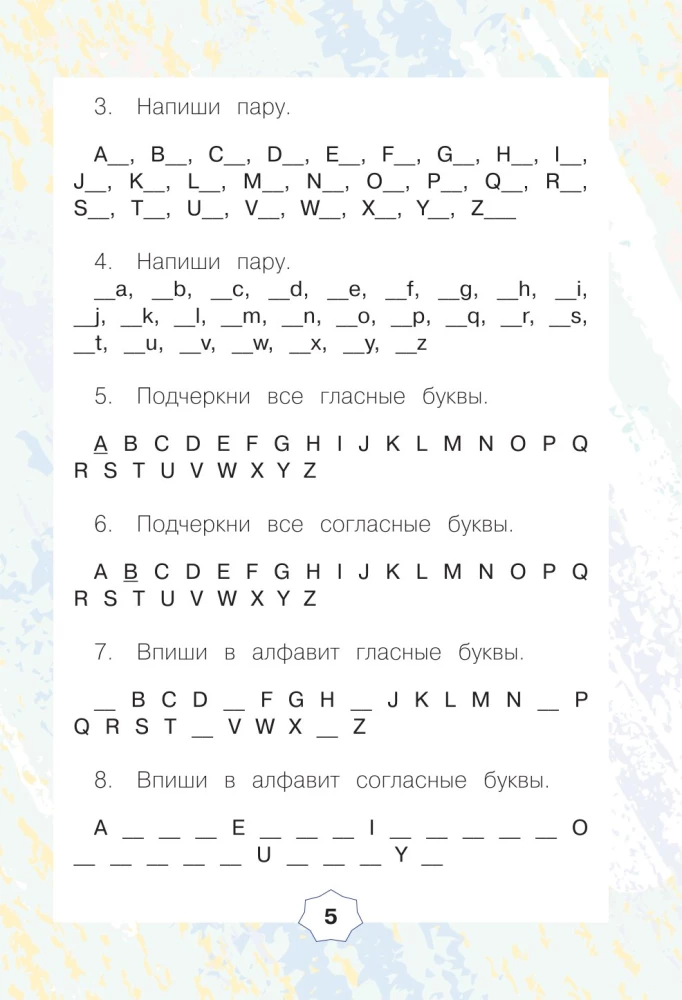 3. Напиши пару.
A__, B__, C__, D__, E__, F__, G__, H__, I__,
J__, K__, L__, M__, N__, O__, P__, Q__, R__,
S__, T__, U__, V__, W__, X__, Y__, Z___
4. Напиши пару.
__a, __b, __c, __d, __e, __f, __g, __h, __i,
__j, __k, __l, __m, __n, __o, __p, __q, __r, __s,
__t, __u, __v, __w, __x, __y, __z
5. Подчеркни все гласные буквы.
A B C D E F G H I J K L M N O P Q
R S T U V W X Y Z
6. Подчеркни все согласные буквы.
A B C D E F G H I J K L M N O P Q
R S T U V W X Y Z
7. Впиши в алфавит гласные буквы.
__ B C D __ F G H __ J K L M N __ P
Q R S T __ V W X __ Z
8. Впиши в алфавит согласные буквы.
A __ __ __ E __ __ __ I __ __ __ __ __ O
__ __ __ __ __ U __ __ __ Y __
5